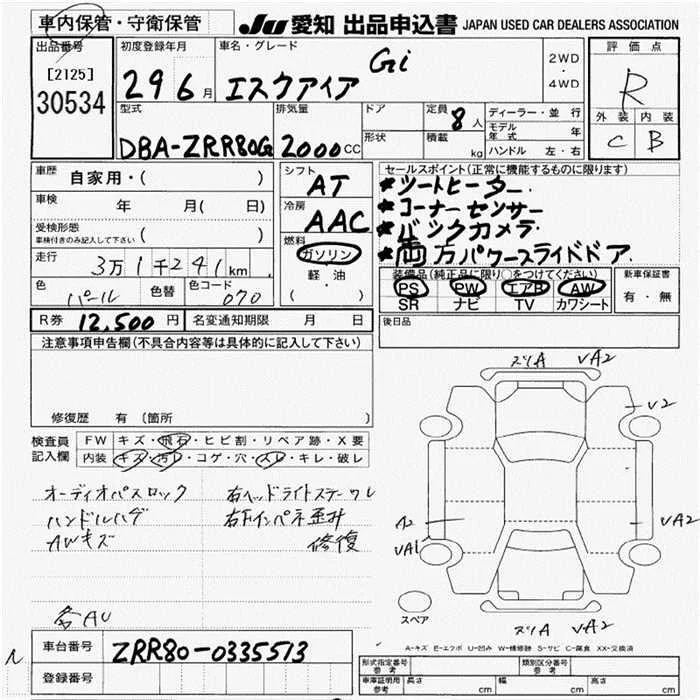 車内保管・守衛保管
JU 愛知 出品申込書 JAPAN USED CAR DEALERS ASSOCIATION
出品番号
[2125]
30534
初度登録年月
29 6月
車名・グレード
エスクァイア Gi
2WD
・
4WD
評価点
R
外装 内装
C B
型式
DBA-ZRR80G
排気量
2000cc
ドア
形状
定員 8人
積載 kg
ディーラー・並行
モデル年式 年
ハンドル 左・右
車歴 自家用・( )
車検 年 月( 日)
受検形態
車検付きのみ記入して下さい ( )
走行 3万1千241km
色 パール
色替
色コード 070
シフト
AT
冷房
AAC
燃料
ガソリン
軽油
( ・ )
セールスポイント(正常に機能するものに限ります)
★シートヒーター.
★コーナーセンサー
★バックカメラ
★両方パワースライドドア
装備品(純正品に限り○をつけてください)
PS PW エアB AW
SR ナビ TV カワシート
新車保証書
有・無
R券 12,500円
名変通知期限 月 日
後日品
注意事項申告欄(不具合内容等は具体的に記入して下さい)
修復歴 有 〔箇所
検査員
記入欄
FW キズ・飛石・ヒビ割・リペア跡・X要
内装 キズ・汚レ・コゲ・穴・スレ・キレ・破レ
オーディオパスロック
ハンドルハゲ
AWキズ
右ヘッドライトステーワレ
右下インパネ歪み
修復
各AU
ズリA VA2
V2
A2
VA1
VA2
スペア
ズリA VA2
A-キズ E-エクボ U-凹み W-補修跡 S-サビ C-腐食 XX-交換済
車台番号 ZRR80-0335513
登録番号
形式指定番号
参考
類別区分番号
参考
車庫証明用
参考
長さ cm
幅 cm
高さ cm